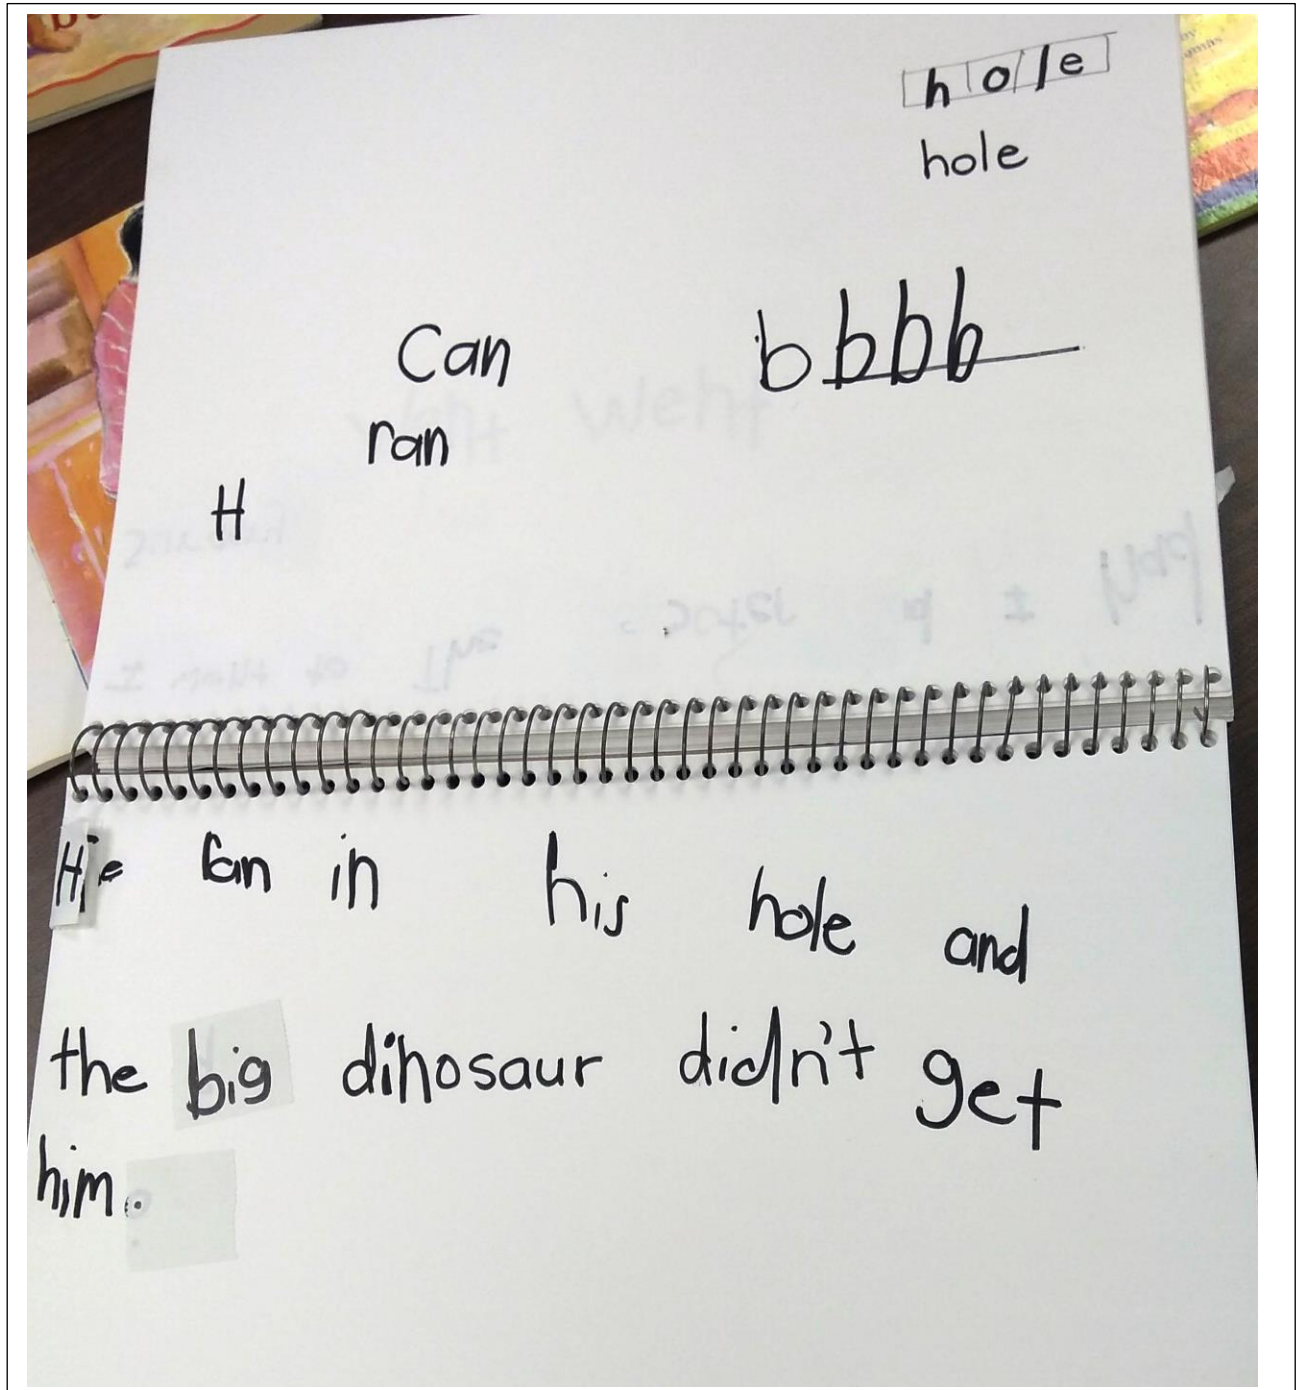 hole
hole
Can
bbbb
ran
H
He ran in his hole and
the big dinosaur didn't get
him.